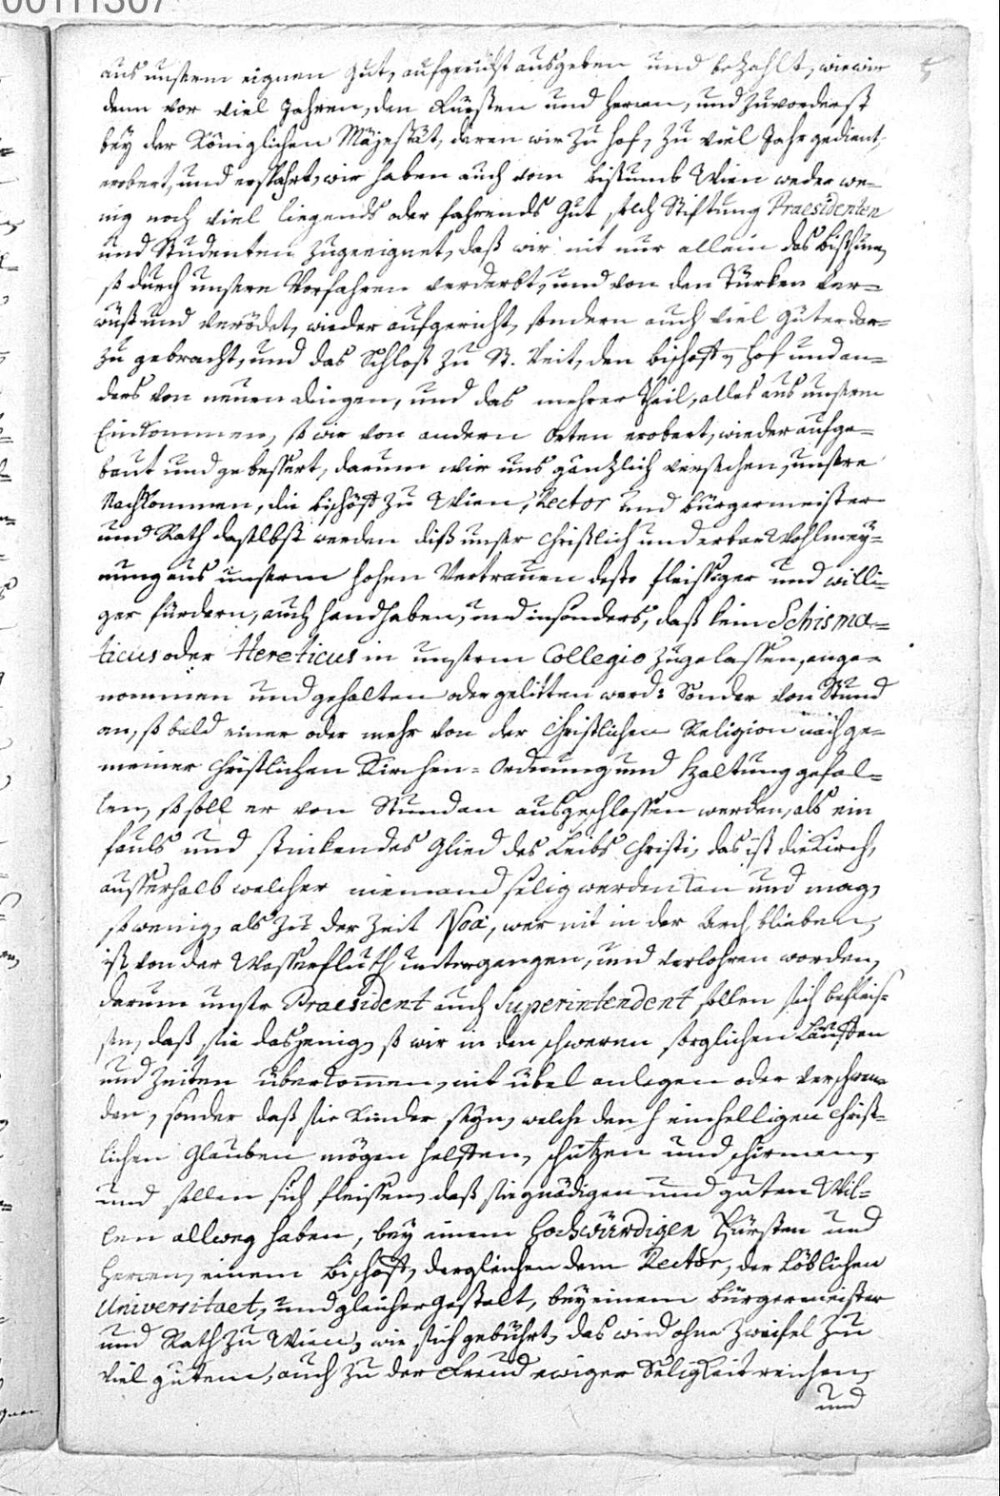 00111307
5
aus unserm eignen Gut, aufgericht ausgeben und bezahlt, wie wir
dann vor viel Jahren, den Fürsten und Herren, und zuvorderst
bey der Königlichen Mäjestät, deren wir zu Hof, zu viel Jahr gedient,
erobert, und erspahrt, wir haben auch vom Bistumb Wien weder we-
nig noch viel liegends oder fahrends Gut solch Stiftung Praesidenten
und Studenten zugeeignet, daß wir nit nur allein das Bisthum,
so durch unsere Vorfahren verderbt, und von den Türken ver-
wüst und verödet, wieder aufgericht, sondern auch viel Güter dar-
zu gebracht, und das Schloß zu St. Veit, den Bischoff-Hof und an-
ders von neuen dingen, und das mehrer Theil, alles aus unserm
Einkommen, so wir von andern Orten erobert, wieder aufge-
baut und gebessert, darum wir uns gäntzlich versehen, unsere
Nachkommen, die Bischöff zu Wien, Rector und Bürgermeister
und Rath daselbst werden diß unser Christlich und erbar Wohlmey-
nung aus unserm hohen Vertrauen desto fleissiger und willi-
ger fürdern, auch handhaben, und insonders, daß kein Schisma-
ticus oder Hereticus in unserm Collegio zugelassen, ange-
nommen und gehalten oder gelitten werd: Sonder von Stund
an, so bald einer oder mehr von der Christlichen Religion nach ge-
meiner Christlichen Kirchen-Ordnung und Haltung gefal-
len, so soll er von Stundan ausgeschlossen werden, als ein
fauls und stinkendes Glied des Leibs Christi, das ist die Kirch,
ausserhalb welcher niemand selig werden kan und mag,
so wenig, als zu der Zeit Noä, wer nit in der Arch blieben,
ist von der Wasserfluth untergangen, und verlohren worden,
darum unser Praesident auch Superintendent sollen sich befleis-
sen, daß sie dasjenig, so wir in den schweren sorglichen Läufften
und Zeiten überkommen, nit übel anlegen oder verschwen-
den, sonder daß sie Kinder seyn, welche den H einhelligen Christ-
lichen Glauben mögen helffen, schützen und schirmen,
und sollen sich fleissen, daß sie gnädigen und guten Wil-
len allweg haben, bey einem Hochwürdigen Fürsten und
Herren, einem Bischoff, dergleichen dem Rector, der Löblichen
Universitaet, und gleicher gestalt, bey einem Bürgermeister
und Rath zu Wien, wie sich gebührt, das wird ohne Zweifel zu
viel gutem, auch zu der Freud ewiger Seligkeit reichen,
und